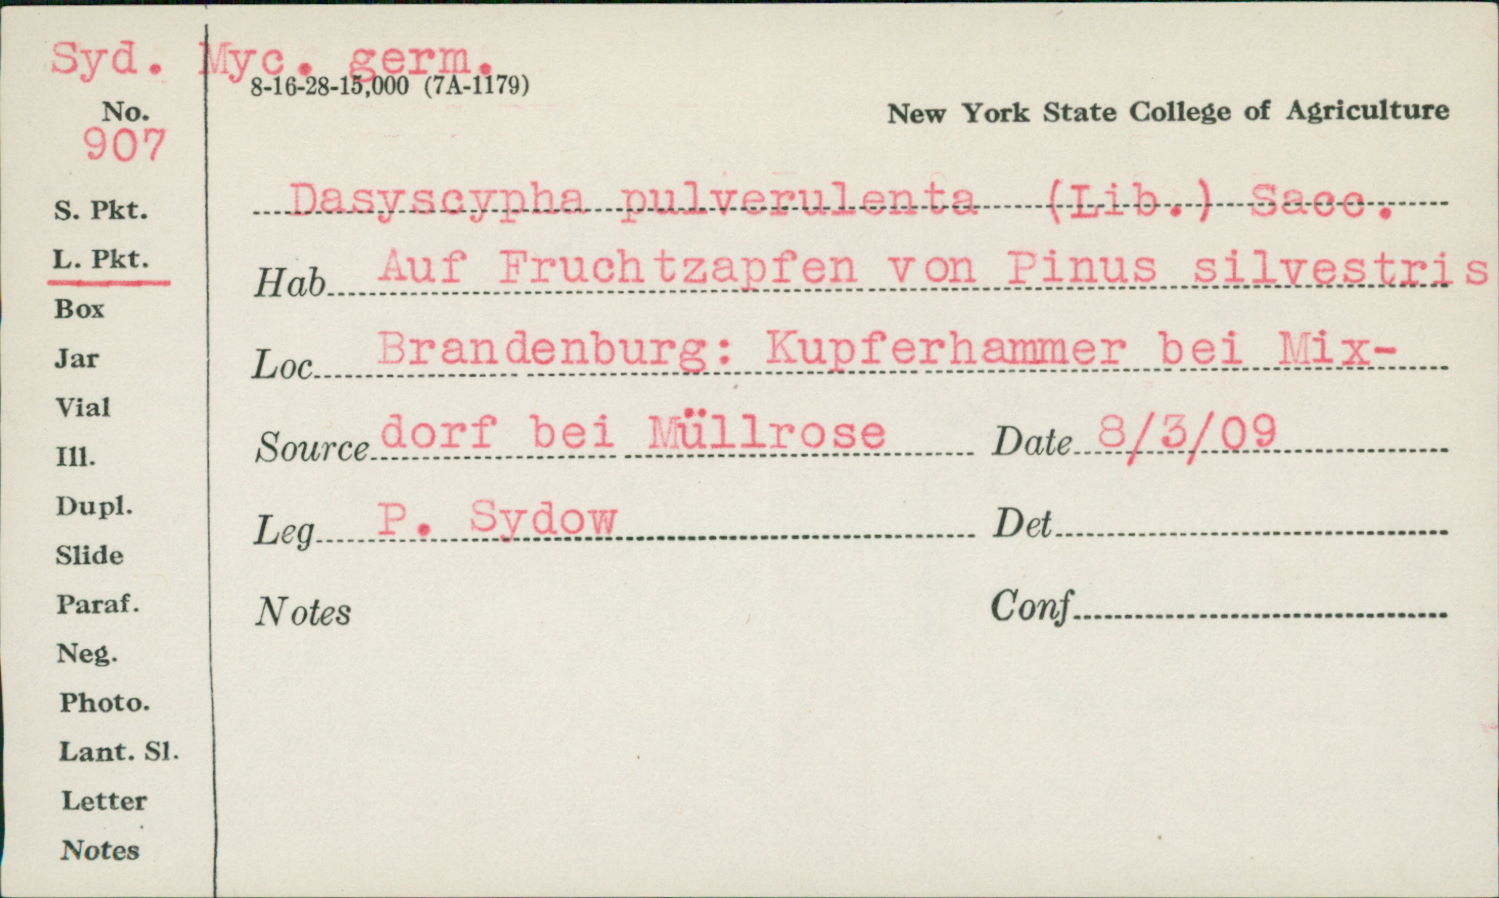 Syd. Myc. germ.
8-16-28-15,000 (7A-1179)
No.
907
New York State College of Agriculture
Dasyscypha pulverulenta (Lib.) Sacc.
Hab Auf Fruchtzapfen von Pinus silvestris
Loc Brandenburg: Kupferhammer bei Mix-
Source dorf bei Müllrose Date 8/3/09
Leg P. Sydow Det
Notes Conf
S. Pkt.
L. Pkt.
Box
Jar
Vial
Ill.
Dupl.
Slide
Paraf.
Neg.
Photo.
Lant. Sl.
Letter
Notes